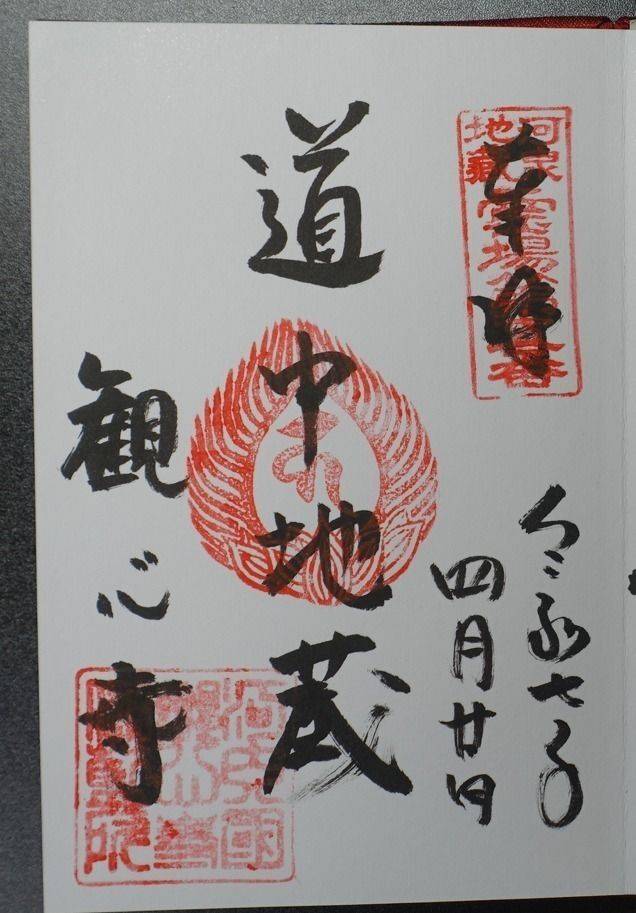 奉拝
河泉
地蔵
霊場第
番
令和七年
四月廿日
道中地蔵
観心寺
河内國